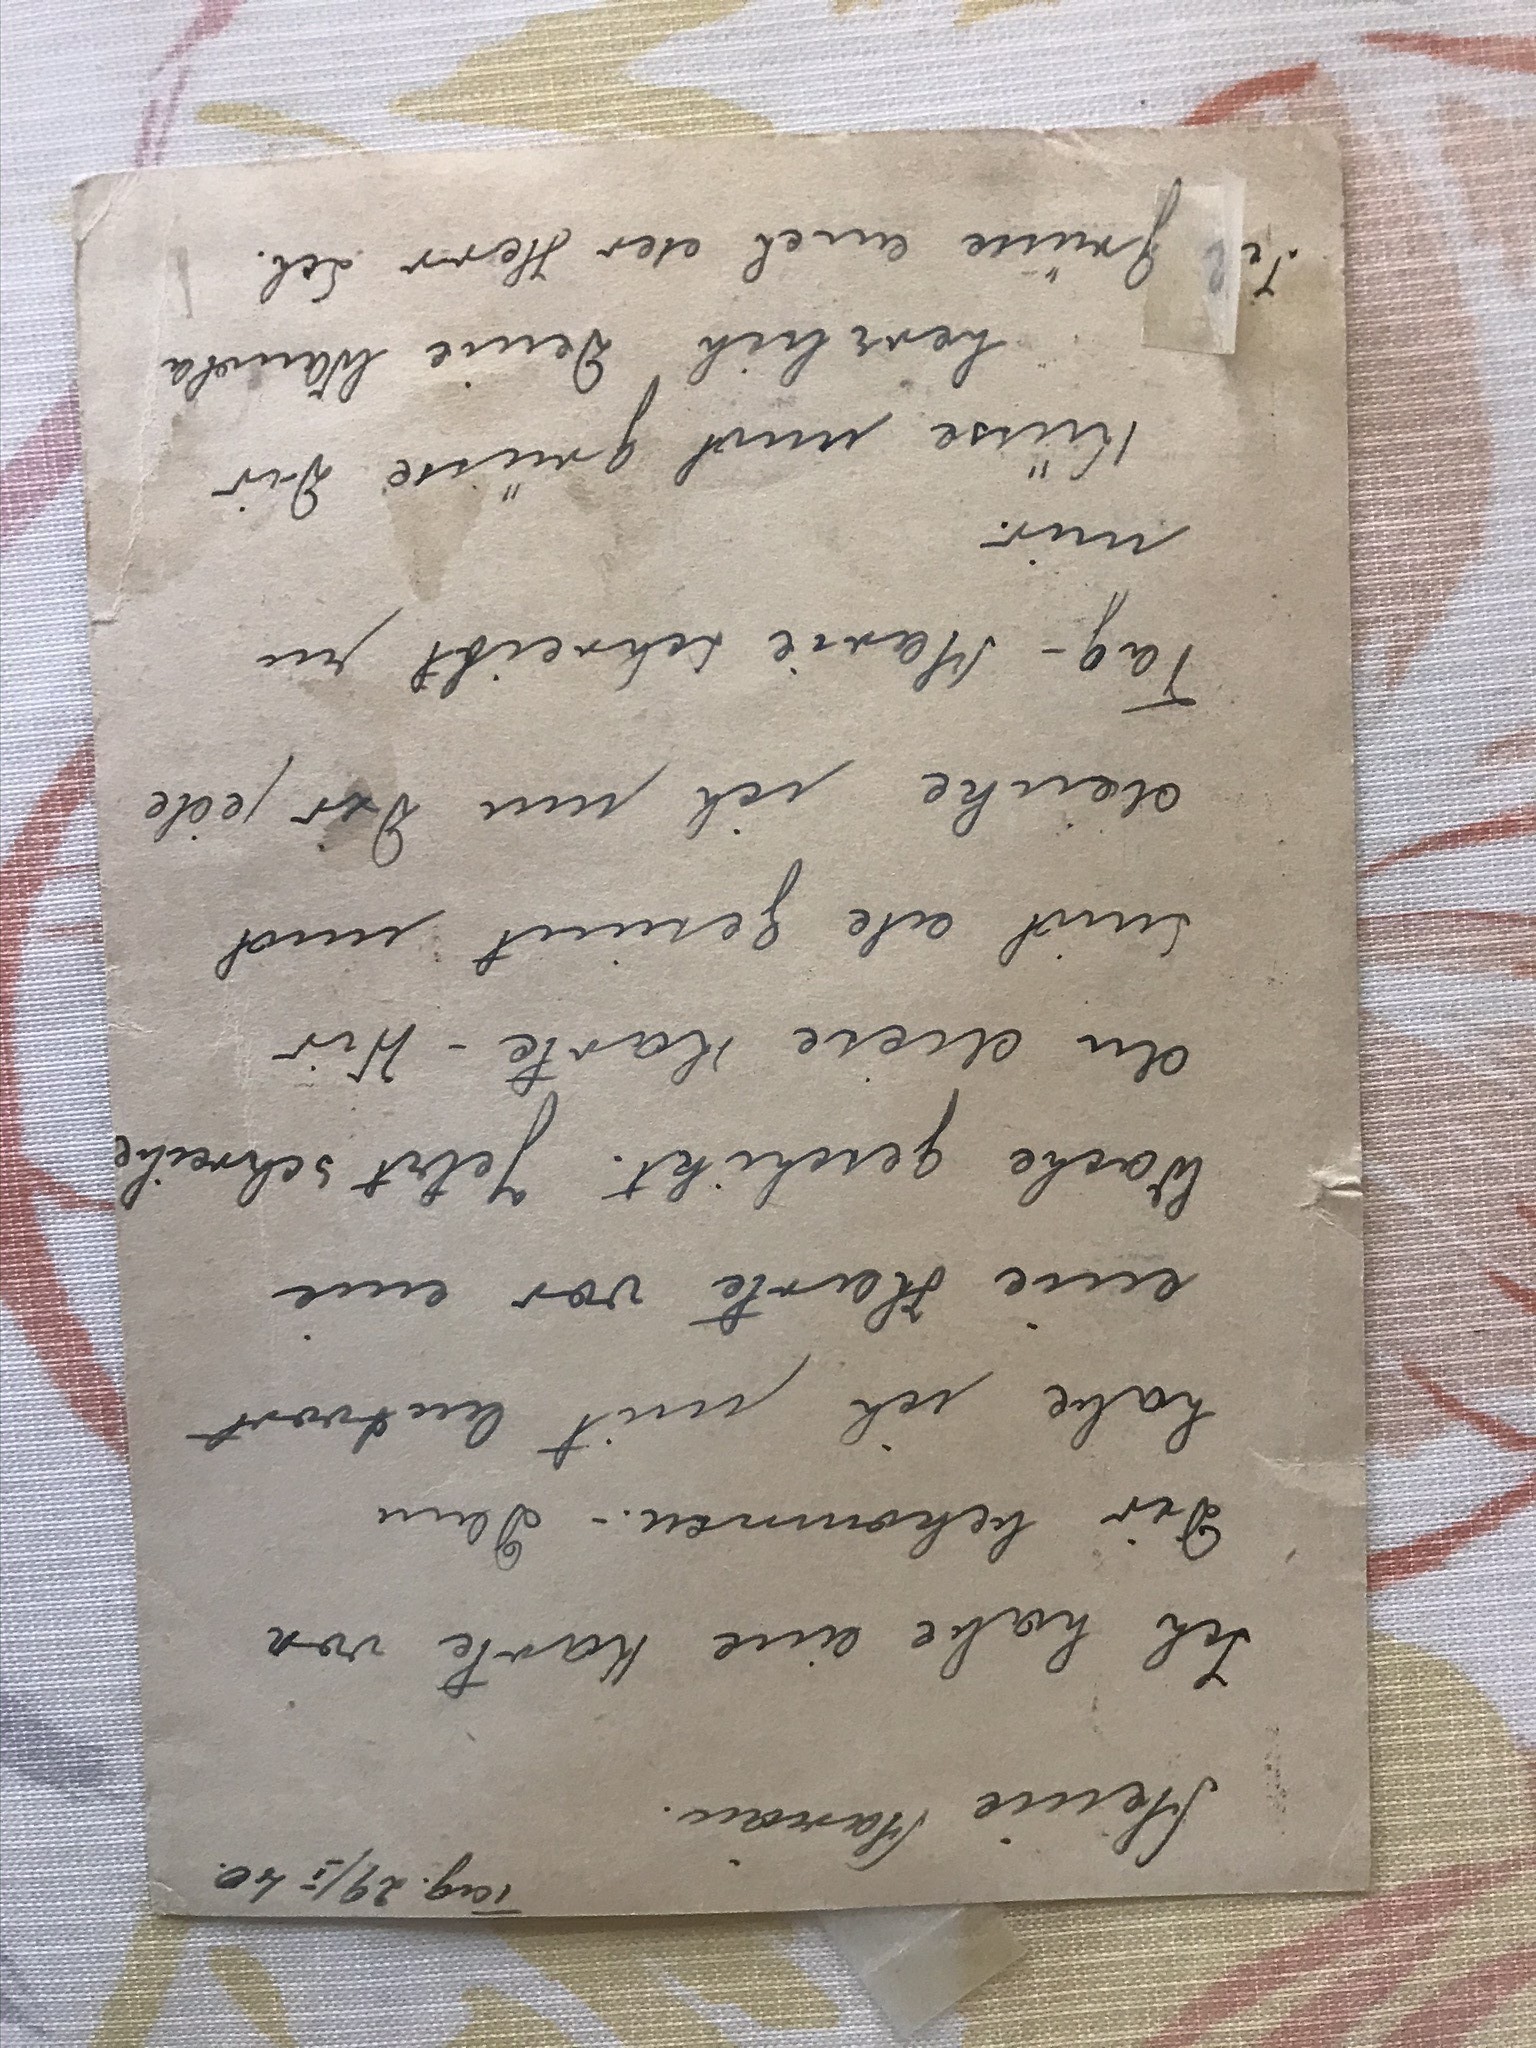 Tag. 29/I 40.
Meine Marian.
Ich habe eine Karte von
Dir bekommen. - Dann
habe ich mit Antwort
eine Karte vor eine
Woche geschikt. Jetzt schreibe
du diese Karte - Wir
sind ale gesunt und
denke ich nun Dir jede
Tag - Marie schreibt zu
mir.
Küsse und grüsse Dir
herzlich Deine Wanda
grüsse auch der Herr